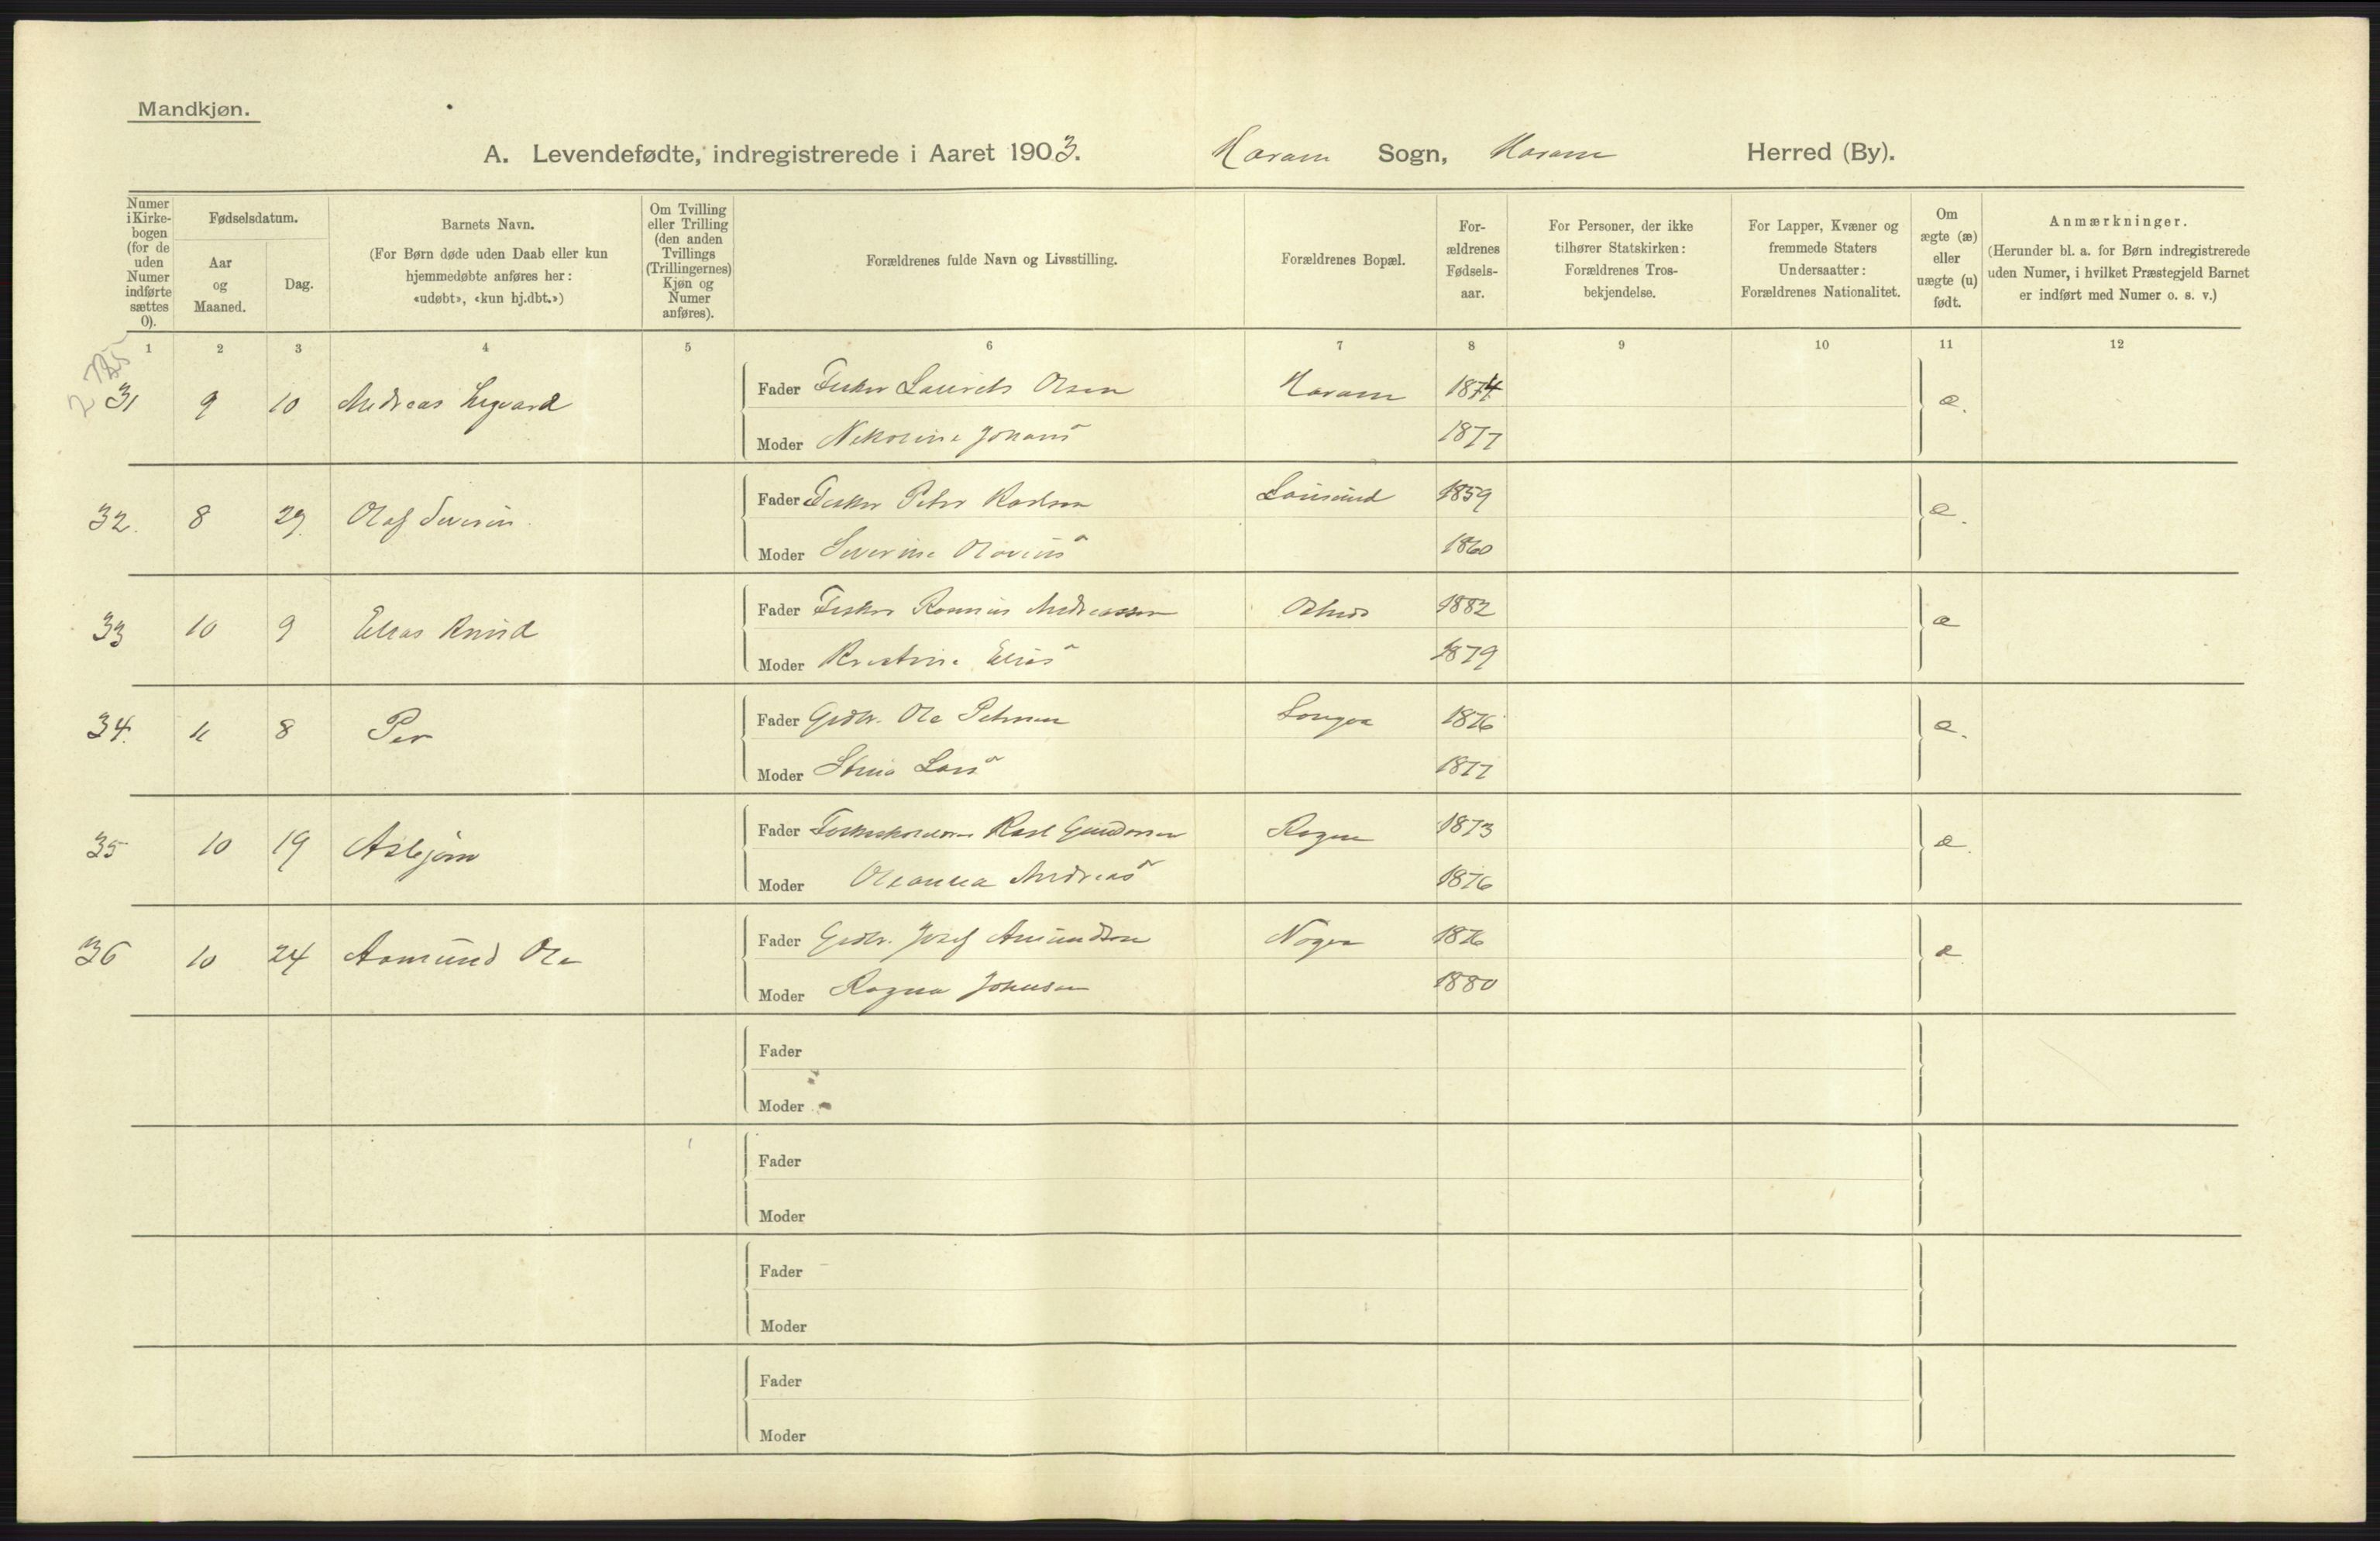 Mandkjøn.
A. Levendefødte, indregistrerede i Aaret 1903. Haram Sogn, Haram Herred (By).
Numer i Kirkebogen (for de uden Numer indførte sættes 0).
Fødselsdatum.
Aar og Maaned.
Dag.
Barnets Navn.
(For Børn døde uden Daab eller kun hjemmedøbte anføres her: «udøbt», «kun hj.dbt.»)
Om Tvilling eller Trilling (den anden Tvillings (Trillingernes) Kjøn og Numer anføres).
Forældrenes fulde Navn og Livsstilling.
Forældrenes Bopæl.
Forældrenes Fødselsaar.
For Personer, der ikke tilhører Statskirken: Forældrenes Trosbekjendelse.
For Lapper, Kvæner og fremmede Staters Undersaatter: Forældrenes Nationalitet.
Om ægte (æ) eller uægte (u) født.
Anmærkninger.
(Herunder bl. a. for Børn indregistrerede uden Numer, i hvilket Præstegjeld Barnet er indført med Numer o. s. v.)
1 2 3 4 5 6 7 8 9 10 11 12
31 9 10 Andreas Sigvard Fader Fisker Laurits Olsen Haram 1874 æ.
Moder Nekoline Johans 1877
32. 8 29. Olaf Severin Fader Fisker Peter Karlsen 1859 æ.
Moder Severine 1860
33 10 9 Elias Knud Fader Fisker Rasmus Andreassen 1882 æ
Moder Kristine Elias 1879
34. 11 8 Per Fader Grdbr. Ole Petersen Longva 1876 æ.
Moder Stina Lars 1877
35 10 19 Asbjørn Fader Karl Gundersen Rogne 1873 æ.
Moder Oleanna Andreas 1876
36 10 24 Aamund Ole Fader Grdbr. Josef Amundsen 1876 æ
Moder Ragna Johnsen 1880
Fader
Moder
Fader
Moder
Fader
Moder
Fader
Moder